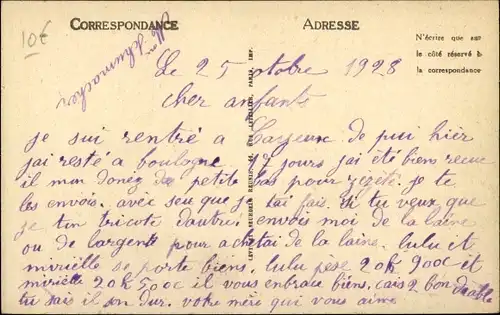 10€
CORRESPONDANCE
ADRESSE
N'écrire que sur
le côté réservé à
la correspondance
Schumacher
Le 25 octobre 1928
cher anfants
je sui rentré a Cayeux de pui hier
jai resté a boulogne 17 jours jai été bien recue
il mon donez de petits bas pour zézéte. je te
les envois. avec seu que j lai fais. si tu veux que
je ten tricote dautre. envois moi de la laine
ou de largents pour achetai de la laine. lulu et
mirielle se porte biens. lulu pèse 20k 900c et
mirielle 20k 50c il vous enbrace biens. cais 2 bon diable
tu sais il son dur. votre mère qui vous aime